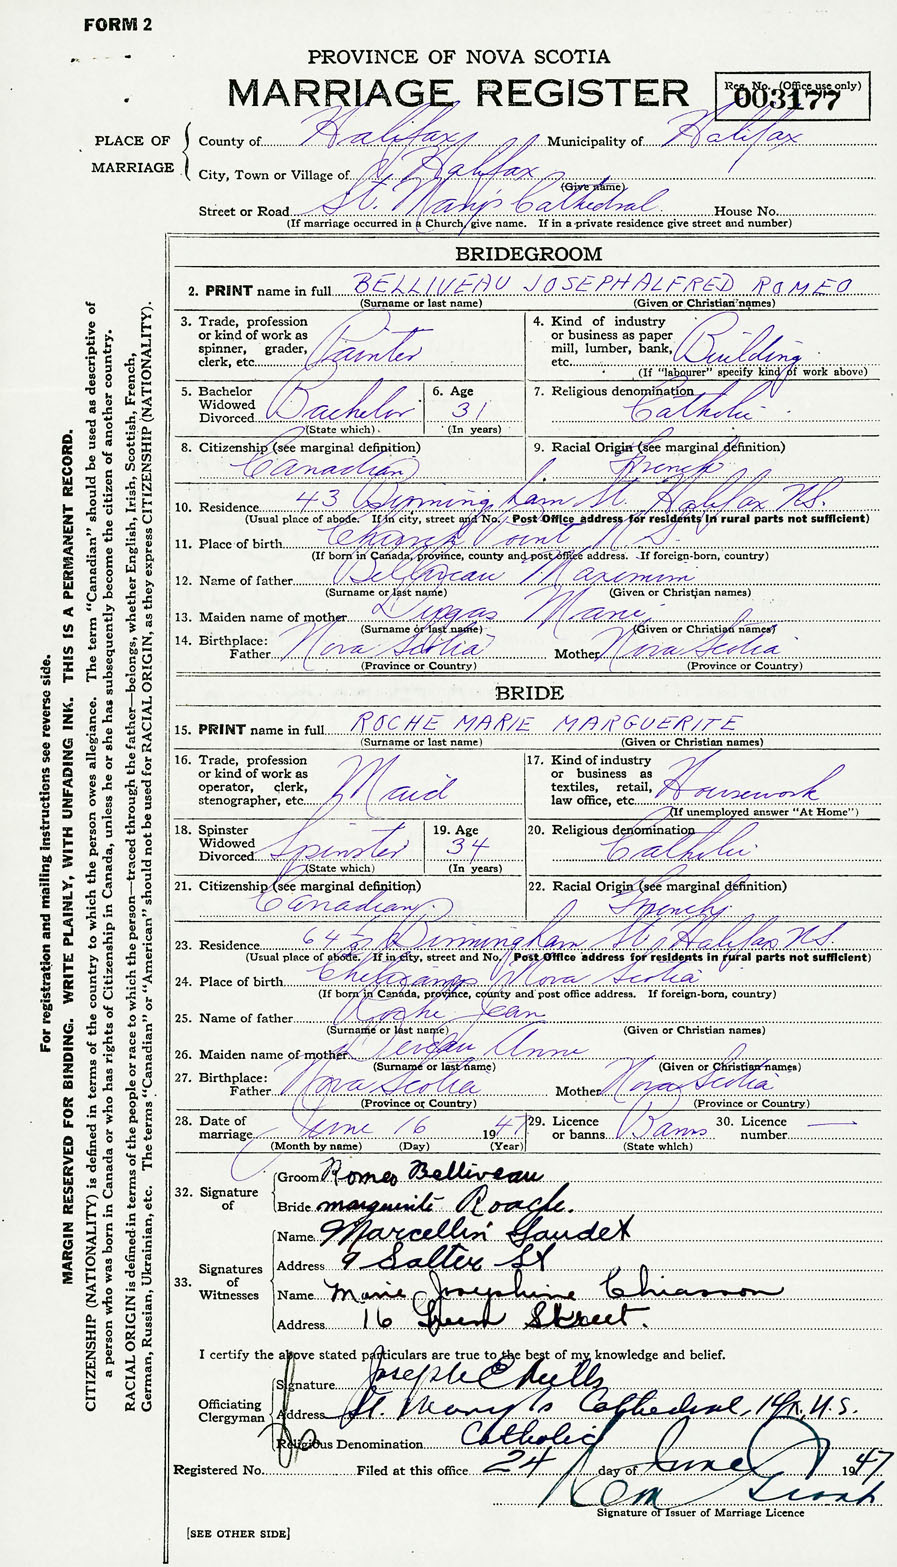 FORM 2
PROVINCE OF NOVA SCOTIA
MARRIAGE REGISTER
Reg. No. (Office use only)
003177
PLACE OF MARRIAGE
County of Halifax Municipality of Halifax
City, Town or Village of Halifax
(Give name)
Street or Road St. Mary's Cathedral House No.
(If marriage occurred in a Church, give name. If in a private residence give street and number)
BRIDEGROOM
2. PRINT name in full BELLIVEAU JOSEPH ALFRED ROMEO
(Surname or last name) (Given or Christian names)
3. Trade, profession or kind of work as spinner, grader, clerk, etc. Painter
4. Kind of industry or business as paper mill, lumber, bank, etc. Building
(If "labourer" specify kind of work above)
5. Bachelor Widowed Divorced Bachelor
(State which)
6. Age 31
(In years)
7. Religious denomination Catholic
8. Citizenship (see marginal definition) Canadian
9. Racial Origin (see marginal definition) French
10. Residence 43 Birmingham St. Halifax N.S.
(Usual place of abode. If in city, street and No. Post Office address for residents in rural parts not sufficient)
11. Place of birth Church Point N.S.
(If born in Canada, province, county and post office address. If foreign-born, country)
12. Name of father Belliveau Maximin
(Surname or last name) (Given or Christian names)
13. Maiden name of mother Dugas Marie
(Surname or last name) (Given or Christian names)
14. Birthplace: Father Nova Scotia Mother Nova Scotia
(Province or Country) (Province or Country)
BRIDE
15. PRINT name in full ROCHE MARIE MARGUERITE
(Surname or last name) (Given or Christian names)
16. Trade, profession or kind of work as operator, clerk, stenographer, etc. Maid
17. Kind of industry or business as textiles, retail, law office, etc. Housework
(If unemployed answer "At Home")
18. Spinster Widowed Divorced Spinster
(State which)
19. Age 34
(In years)
20. Religious denomination Catholic
21. Citizenship (see marginal definition) Canadian
22. Racial Origin (see marginal definition) French
23. Residence Birmingham St. Halifax N.S.
(Usual place of abode. If in city, street and No. Post Office address for residents in rural parts not sufficient)
24. Place of birth Nova Scotia
(If born in Canada, province, county and post office address. If foreign-born, country)
25. Name of father Roche Jean
(Surname or last name) (Given or Christian names)
26. Maiden name of mother Anne
(Surname or last name) (Given or Christian names)
27. Birthplace: Father Nova Scotia Mother Nova Scotia
(Province or Country) (Province or Country)
28. Date of marriage June 16 1947
(Month by name) (Day) (Year)
29. Licence or banns Banns
(State which)
30. Licence number —
32. Signature of
Groom Romeo Belliveau
Bride marguerite Roache.
33. Signatures of Witnesses
Name Marcellin Gaudet
Address 9 Salter St
Name Marie Josephine Chiasson
Address 16 Green Street.
I certify the above stated particulars are true to the best of my knowledge and belief.
Officiating Clergyman
Signature Joseph
Address St. Mary's Cathedral,
Religious Denomination Catholic
Registered No. Filed at this office 24 day of June 1947
Signature of Issuer of Marriage Licence
[SEE OTHER SIDE]
For registration and mailing instructions see reverse side.
MARGIN RESERVED FOR BINDING. WRITE PLAINLY, WITH UNFADING INK. THIS IS A PERMANENT RECORD.
CITIZENSHIP (NATIONALITY) is defined in terms of the country to which the person owes allegiance. The term "Canadian" should be used as descriptive of
a person who was born in Canada or who has rights of Citizenship in Canada, unless he or she has subsequently become the citizen of another country.
RACIAL ORIGIN is defined in terms of the people or race to which the person—traced through the father—belongs, whether English, Irish, Scottish, French,
German, Russian, Ukrainian, etc. The terms "Canadian" or "American" should not be used for RACIAL ORIGIN, as they express CITIZENSHIP (NATIONALITY).